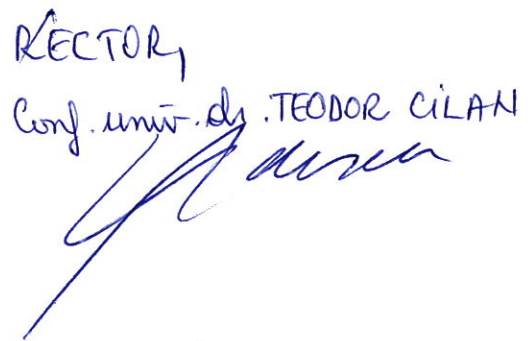 RECTOR,
Conf. univ. dr. TEODOR CILAN